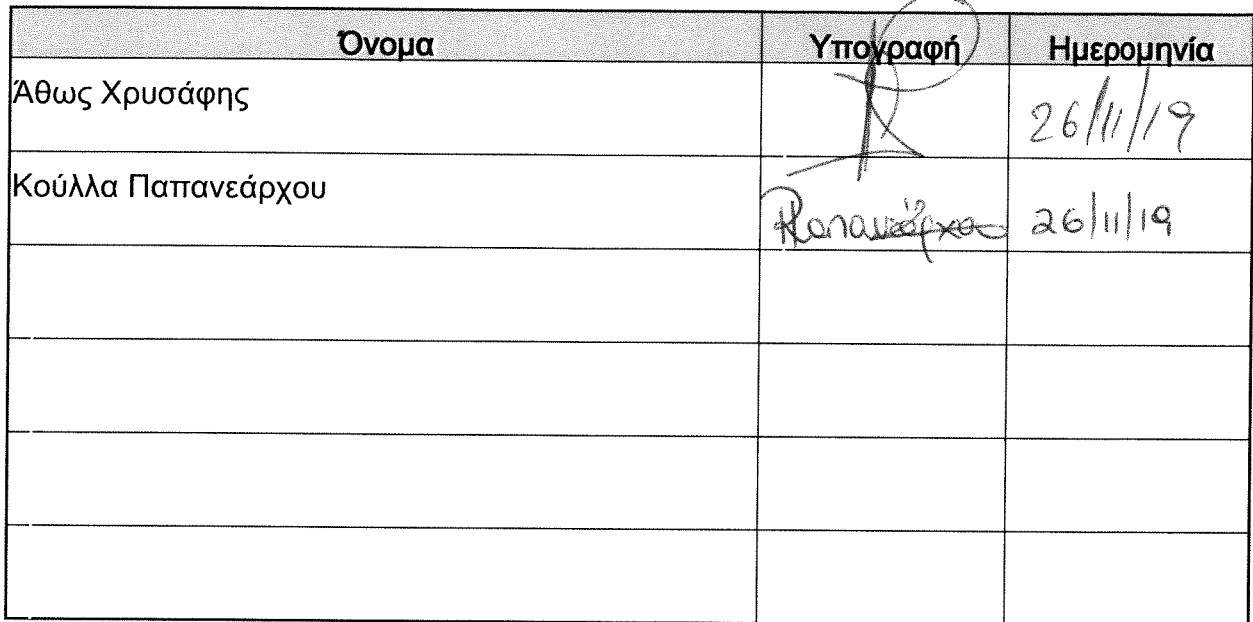 Όνομα Υπογραφή Ημερομηνία
Άθως Χρυσάφης 26/11/19
Κούλλα Παπανεάρχου Παπανεάρχου 26/11/19